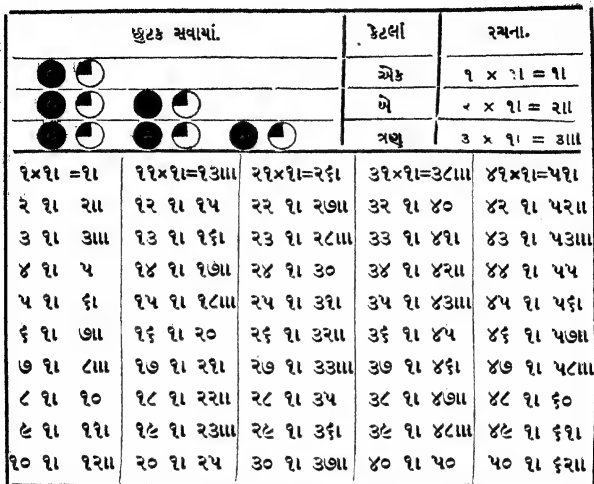 છુટક સવાયાં. કેટલાં રચના.
એક ૧ × ૧ા = ૧ા
બે ૨ × ૧ા = ૨ાા
ત્રણ ૩ × ૧ા = ૩ાાા
૧×૧ા =૧ા ૧૧×૧ા=૧૩ાાા ૨૧×૧ા=૨૬ા ૩૧×૧ા=૩૮ાાા ૪૧×૧ા=૫૧ા
૨ ૧ા ૨ાા ૧૨ ૧ા ૧૫ ૨૨ ૧ા ૨૭ાા ૩૨ ૧ા ૪૦ ૪૨ ૧ા ૫૨ાા
૩ ૧ા ૩ાાા ૧૩ ૧ા ૧૬ા ૨૩ ૧ા ૨૮ાાા ૩૩ ૧ા ૪૧ા ૪૩ ૧ા ૫૩ાાા
૪ ૧ા ૫ ૧૪ ૧ા ૧૭ાા ૨૪ ૧ા ૩૦ ૩૪ ૧ા ૪૨ાા ૪૪ ૧ા ૫૫
૫ ૧ા ૬ા ૧૫ ૧ા ૧૮ાાા ૨૫ ૧ા ૩૧ા ૩૫ ૧ા ૪૩ાાા ૪૫ ૧ા ૫૬ા
૬ ૧ા ૭ાા ૧૬ ૧ા ૨૦ ૨૬ ૧ા ૩૨ાા ૩૬ ૧ા ૪૫ ૪૬ ૧ા ૫૭ાા
૭ ૧ા ૮ાાા ૧૭ ૧ા ૨૧ા ૨૭ ૧ા ૩૩ાાા ૩૭ ૧ા ૪૬ા ૪૭ ૧ા ૫૮ાાા
૮ ૧ા ૧૦ ૧૮ ૧ા ૨૨ાા ૨૮ ૧ા ૩૫ ૩૮ ૧ા ૪૭ાા ૪૮ ૧ા ૬૦
૯ ૧ા ૧૧ા ૧૯ ૧ા ૨૩ાાા ૨૯ ૧ા ૩૬ા ૩૯ ૧ા ૪૮ાાા ૪૯ ૧ા ૬૧ા
૧૦ ૧ા ૧૨ાા ૨૦ ૧ા ૨૫ ૩૦ ૧ા ૩૭ાા ૪૦ ૧ા ૫૦ ૫૦ ૧ા ૬૨ાા